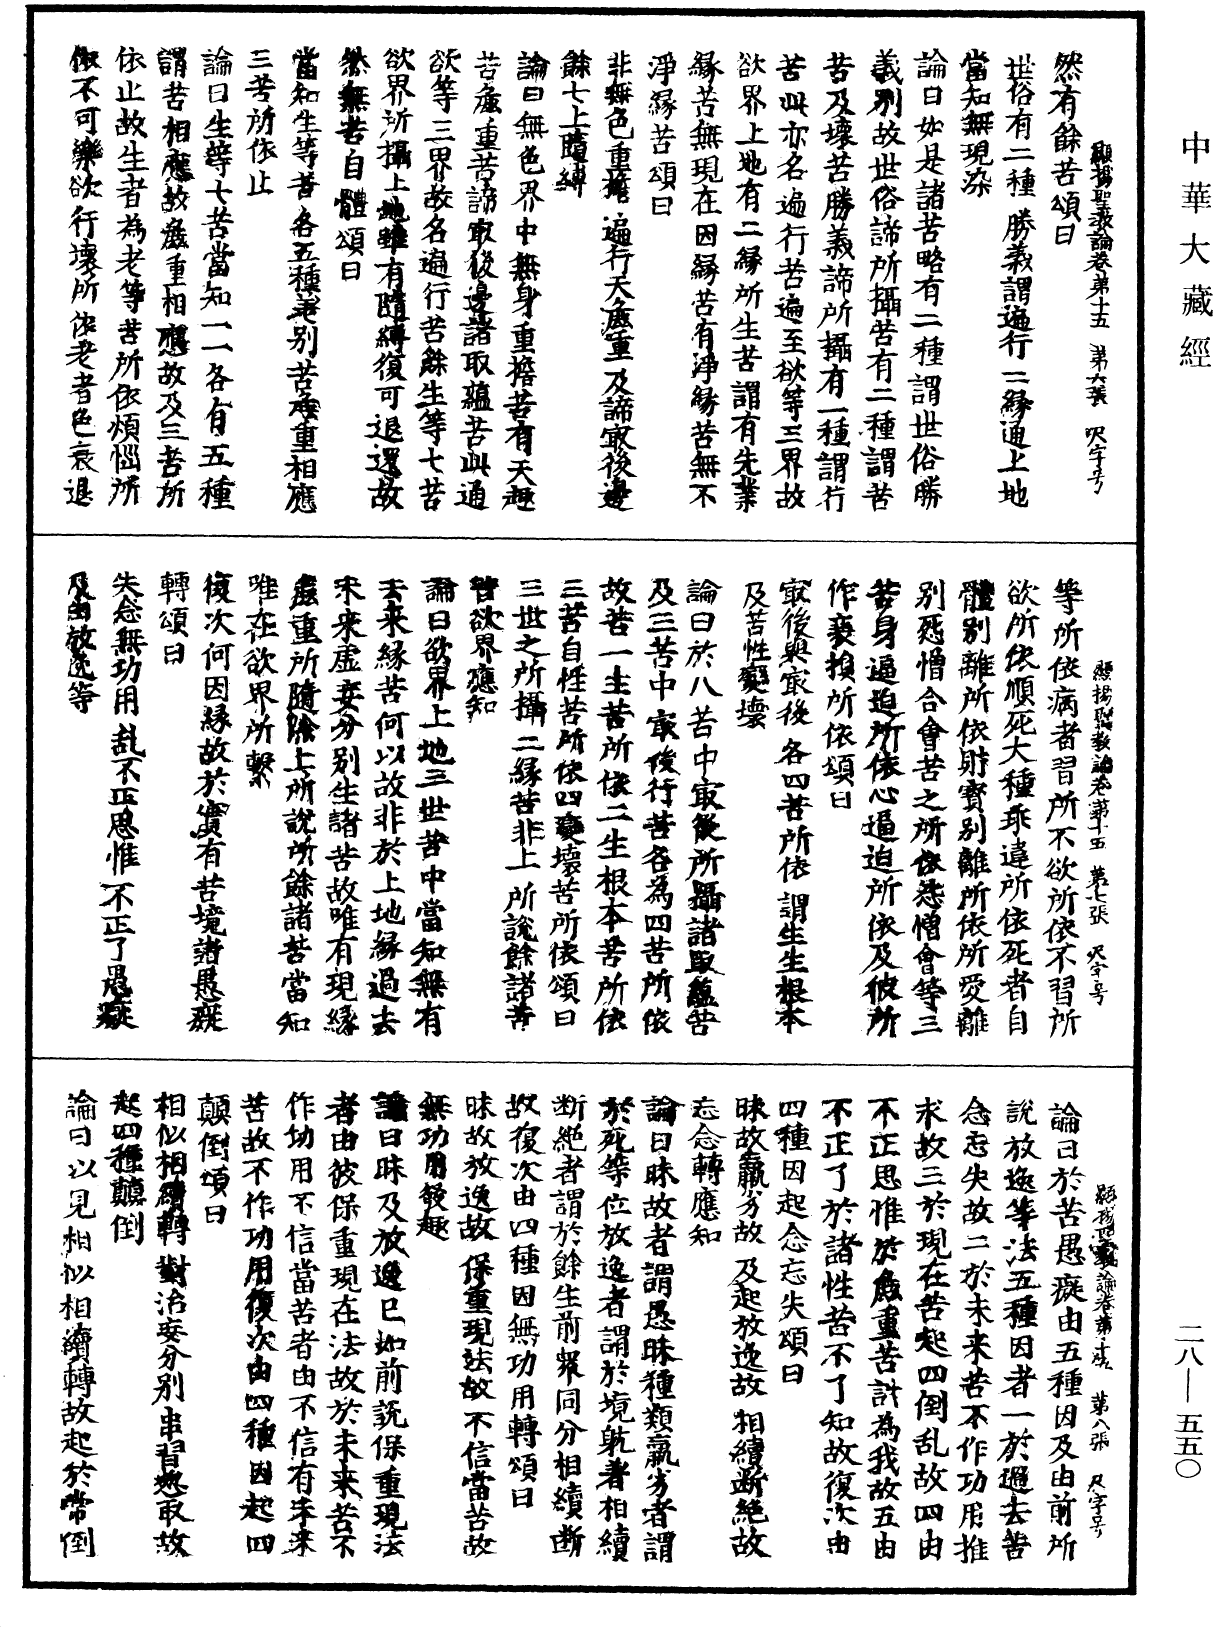 中華大藏經
二八—五五〇
顯揚聖教論卷第十五 第六張 尺字号
然有餘苦頌曰
世俗有二種 勝義謂遍行 二緣通上地
當知無現染
論曰如是諸苦略有二種謂世俗勝
義別故世俗諦所攝苦有二種謂苦
苦及壞苦勝義諦所攝有一種謂行
苦此亦名遍行苦遍至欲等三界故
欲界上地有二緣所生苦謂有先業
緣苦無現在因緣苦有淨緣苦無不
淨緣苦頌曰
非無色重擔 遍行天麁重 及諦㝡後邊
餘七上隨縛
論曰無色界中無身重擔苦有天趣
苦麁重苦諦㝡後邊諸取蘊苦此通
欲等三界故名遍行苦餘生等七苦
欲界所攝上地雖有隨縛復可退還故
然無苦自體頌曰
當知生等苦 各五種差別 苦麁重相應
三苦所依止
論曰生等七苦當知一一各有五種
謂苦相應故麁重相應故及三苦所
依止故生者為老等苦所依煩惱所
依不可樂欲行壞所依老者色衰退
顯揚聖教論卷第十五 第七張 尺字号
等所依病者習所不欲所依不習所
欲所依順死大種乖違所依死者自
體別離所依財寶別離所依所愛離
別死憎合會苦之所依怨憎會等三
苦身逼迫所依心逼迫所依及彼所
作衰損所依頌曰
㝡後與㝡後 各四苦所依 謂生生根本
及苦性變壞
論曰於八苦中㝡後所攝諸取蘊苦
及三苦中㝡後行苦各為四苦所依
故苦一生苦所依二生根本苦所依
三苦自性苦所依四變壞苦所依頌曰
三世之所攝 二緣苦非上 所說餘諸苦
皆欲界應知
論曰欲界上地三世苦中當知無有
去来緣苦何以故非於上地緣過去
未来虛妄分別生諸苦故唯有現緣
麁重所隨除上所說所餘諸苦當知
唯在欲界所繫
復次何因緣故於實有苦境諸愚癡
轉頌曰
失念無功用 乱不正思惟 不正了愚癡
及由放逸等
顯揚聖教論卷第十五 第八張 尺字号
論曰於苦愚癡由五種因及由前所
說放逸等法五種因者一於過去苦
念忘失故二於未来苦不作功用推
求故三於現在苦起四倒乱故四由
不正思惟於麁重苦計為我故五由
不正了於諸性苦不了知故復次由
四種因起念忘失頌曰
昧故羸劣故 及起放逸故 相續断絕故
忘念轉應知
論曰昧故者謂愚昧種類羸劣者謂
於死等位放逸者謂於境躭著相續
断絕者謂於餘生前衆同分相續断
故復次由四種因無功用轉頌曰
昧故放逸故 保重現法故 不信當苦故
無功用發趣
論曰昧及放逸已如前說保重現法
者由彼保重現在法故於未来苦不
作功用不信當苦者由不信有未来
苦故不作功用復次由四種因起四
顛倒頌曰
相似相續轉 對治妄分別 串習起取故
起四種顛倒
論曰以見相似相續轉故起於常倒